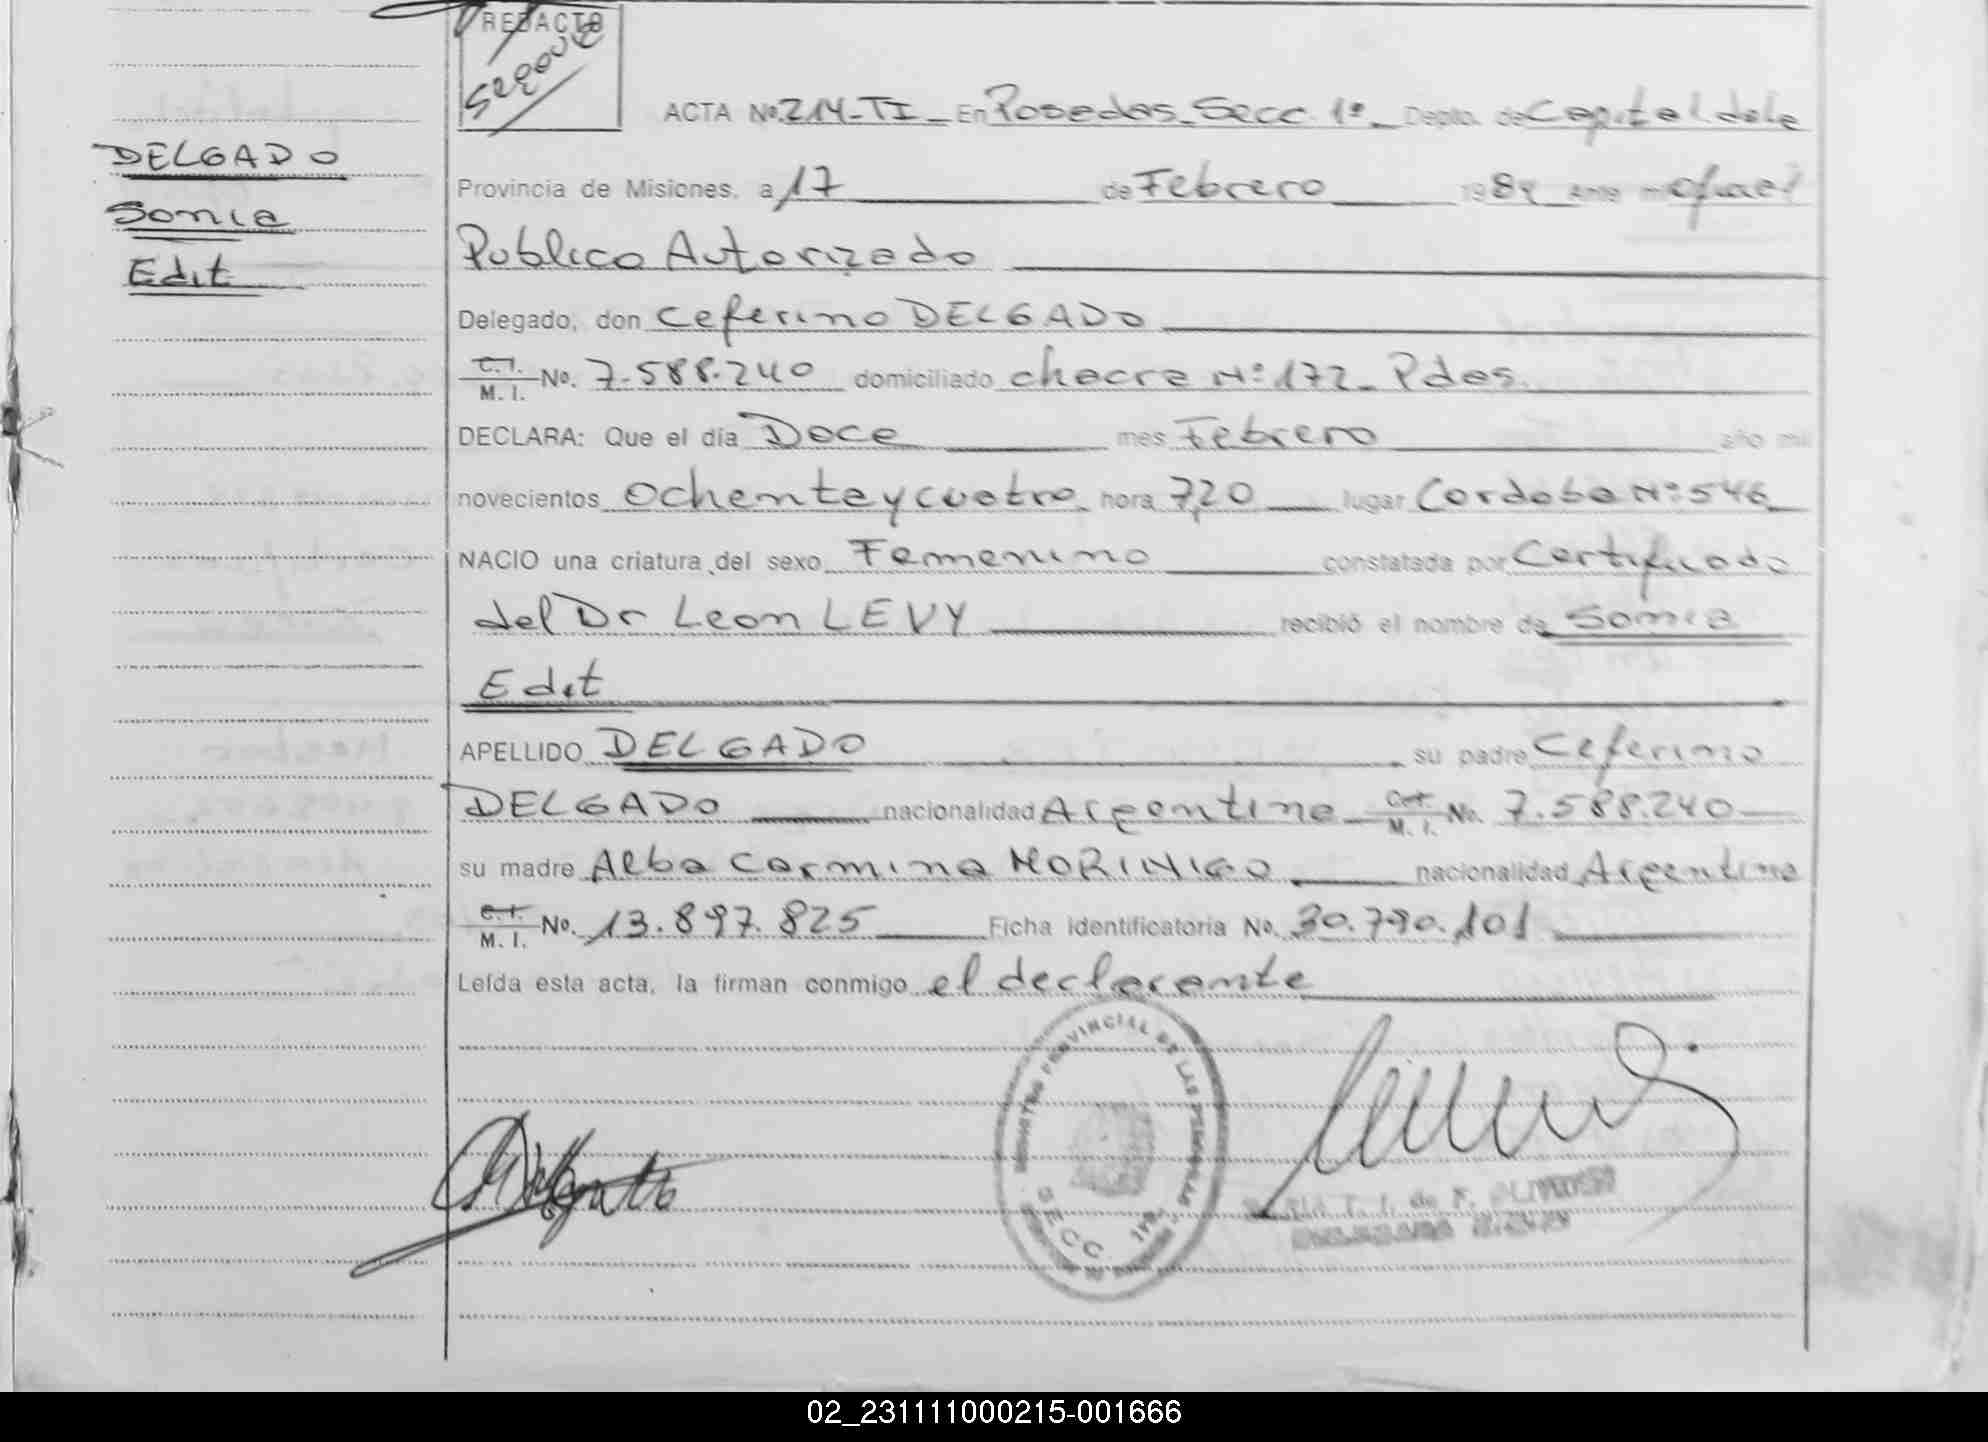 REDACTO
DELGADO
Sonia
Edit
ACTA No. 214-TI En Posadas Secc. 1º Depto. de Capital dela
Provincia de Misiones, a 17 de Febrero 1984 Ante mi
Publico Autorizado
Delegado, don Ceferino DELGADO
C.I. M. I. No. 7.588.240 domiciliado chacra Nº 172 Pdas.
DECLARA: Que el día Doce mes Febrero año mil
novecientos Ochenta y cuatro hora 7,20 lugar Cordoba Nº 546
NACIO una criatura del sexo Femenino constatada por Certificado
del Dr Leon LEVY recibió el nombre de Sonia
Edit
APELLIDO DELGADO su padre Ceferino
DELGADO nacionalidad Argentino M. I. No. 7.588.240
su madre Alba Carmina MORINIGO nacionalidad Argentina
C.I. M. I. No. 13.897.825 Ficha Identificatoria No. 30.790.101
Leída esta acta, la firman conmigo el declarante
REGISTRO PROVINCIAL DE LAS PERSONAS
SECC. 1ra.
T. I. de F.
02_231111000215-001666